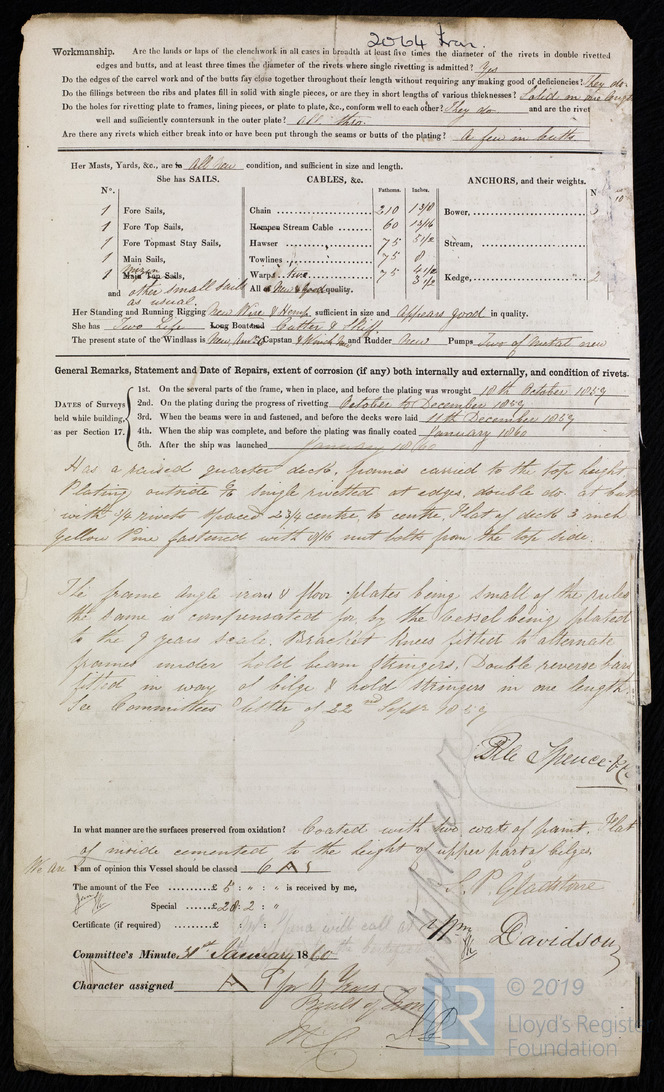 2064 Iron
Workmanship. Are the lands or laps of the clenchwork in all cases in breadth at least five times the diameter of the rivets in double rivetted
edges and butts, and at least three times the diameter of the rivets where single rivetting is admitted? Yes
Do the edges of the carvel work and of the butts fay close together throughout their length without requiring any making good of deficiencies? They do
Do the fillings between the ribs and plates fill in solid with single pieces, or are they in short lengths of various thicknesses? Solid in one length
Do the holes for rivetting plate to frames, lining pieces, or plate to plate, &c., conform well to each other? They do and are the rivet
well and sufficiently countersunk in the outer plate? all thro.
Are there any rivets which either break into or have been put through the seams or butts of the plating? A few in butts
Her Masts, Yards, &c., are in all new condition, and sufficient in size and length.
She has SAILS. CABLES, &c. Fathoms. Inches. ANCHORS, and their weights.
N°. N
1 Fore Sails, Chain 210 1 3/8 Bower, 3
1 Fore Top Sails, Hempen Stream Cable 60 13/16
1 Fore Topmast Stay Sails, Hawser 75 5 1/2 Stream,
1 Main Sails, Towlines 75 8
1 Mizen Main Top Sails, Warps 75 4 1/2 Kedge, 2
3 1/2
and other small sails All of New & good quality.
as usual.
Her Standing and Running Rigging New Wire & Hemp sufficient in size and Appears good in quality.
She has Two Life Long Boat and Cutter & Skiff
The present state of the Windlass is New, Capstan & Winch and Rudder New Pumps Two of metal new
General Remarks, Statement and Date of Repairs, extent of corrosion (if any) both internally and externally, and condition of rivets.
DATES of Surveys held while building, as per Section 17.
1st. On the several parts of the frame, when in place, and before the plating was wrought 18th October 1859
2nd. On the plating during the progress of rivetting October to December 1859
3rd. When the beams were in and fastened, and before the decks were laid 11th December 1859
4th. When the ship was complete, and before the plating was finally coated January 1860
5th. After the ship was launched January 1860
Has a raised quarter deck, frames carried to the top height
Plating outside single rivetted at edges, double do. at butts
with 3/4 rivets spaced 2 3/4 centre to centre. Flat of deck 3 inch
yellow Pine fastened with 9/16 nut bolts from the top side.
The frame angle irons & floor plates being small of the rules
the same is compensated for by the vessel being plated
to the 9 years scale. Bracket knees fitted to alternate
frames under hold beam stringers. Double reverse bars
fitted in way of bilge & hold stringers in one length.
See Committees letter of 22nd Septr 1859
Pile Spence & Co
In what manner are the surfaces preserved from oxidation? Coated with two coats of paint. Flat
of inside cemented to the height of upper part of bilges.
We are I am of opinion this Vessel should be classed 6 A 1
The amount of the Fee £ 5 : " : " is received by me, S. P. Gladstone
Special £ 28: 2 : "
Certificate (if required) £ : : Davidson
Committee's Minute 31st January 1860
Character assigned A 1 for 9 Years
Built of Iron
LR © 2019
Lloyd's Register
Foundation